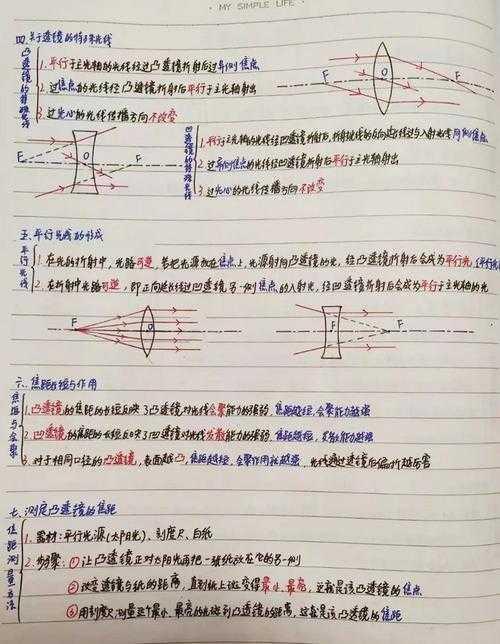 • MY SIMPLE LIFE •
四.关于透镜的特殊光线
凸透镜的特殊光线
1.平行于主光轴的光线经过凸透镜折射后过异侧焦点
2.过焦点的光线经凸透镜折射后平行于主光轴射出
3.过光心的光线传播方向不改变
F O F
F O F
凹透镜的特殊光线
1.平行于主光轴的光线经凹透镜折射后,折射光线的反向延长线过与入射光线同侧焦点
2.过异侧焦点的光线经凹透镜折射后平行于主光轴射出
3.过光心的光线传播方向不改变
五.平行光线的形成
平行光线
1.在光的折射中,光路可逆,若把光源放在焦点上,光源射向凸透镜的光,经凸透镜折射后会成为平行光
2.在折射中光路可逆,即正向延长线过凹透镜另一侧焦点的入射光,经凹透镜折射后会成为平行于主光轴的光
F O
F F
六.焦距长短与作用
焦距与会聚
1.凸透镜的焦距的长短反映了凸透镜对光线会聚能力的强弱,焦距越短,会聚能力越强
2.凹透镜的焦距的长短反映了凹透镜对光线发散能力的强弱,焦距越短,发散能力越强
3.对于相同口径的凸透镜,表面越凸,焦距越短,会聚作用就越强,光线通过透镜后偏折越厉害
七.测定凸透镜的焦距
焦距测量方法
1.器材:平行光源(太阳光)、刻度尺、白纸
2.步骤:①让凸透镜正对太阳光再把一张纸放在它的另一侧
②改变透镜与纸的距离,直到纸上斑变得最小、最亮,这就是该凸透镜的焦点
③用刻度尺测量这个最小、最亮的光斑到凸透镜的距离,这就是该凸透镜的焦距